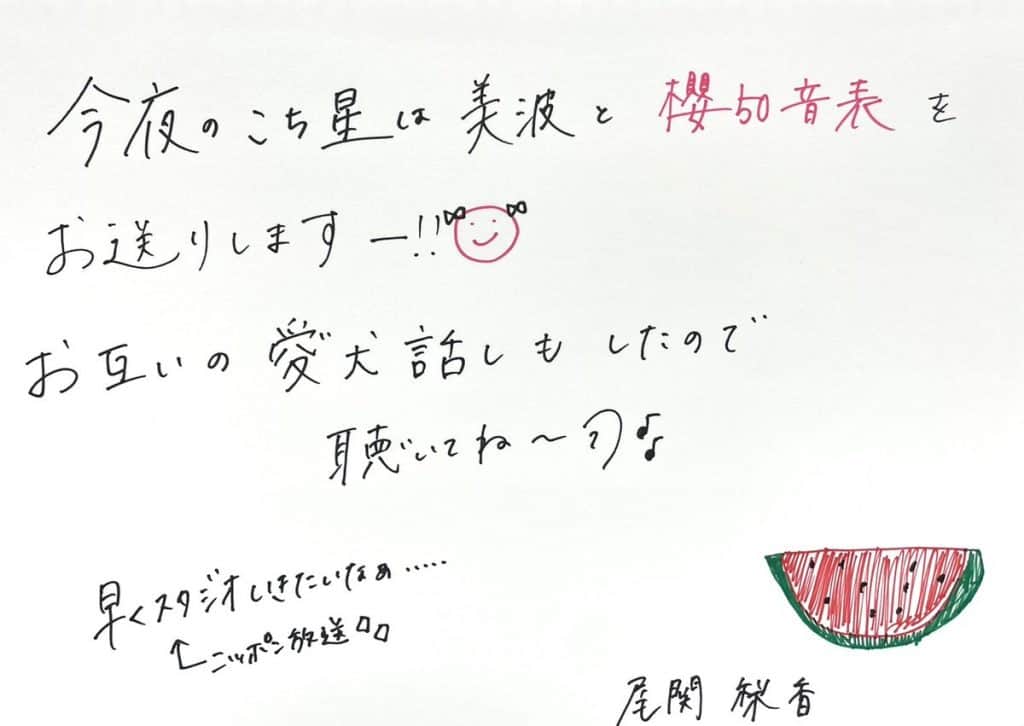 今夜のこち星は美波と櫻50音表を
お送りしますー!!
お互いの愛犬話しもしたので
聴いてね〜
早くスタジオいきたいなぁ.....
↑ニッポン放送
尾関 梨香